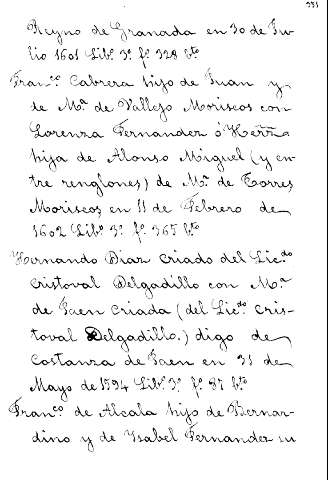 331
Reyno de Granada en 30 de Ju-
lio 1601 Lib.º 3º f.º 328 b.to
Fran.co Cabrera hijo de Juan y
de M.a de Vallejo Moriscos con
Lorenza Fernandez ó Herrña
hija de Alonso Miguel (y en-
tre renglones) de M.a de Torres
Moriscos, en 11 de Febrero de
1602 Lib.º 3º f.º 365 b.to
Hernando Diaz criado del Lic.do
Cristoval Delgadillo con M.a
de Jaen criada (del Lic.do Cris-
toval Delgadillo.) digo de
Costanza de Jaen en 31 de
Mayo de 1594 Lib.º 3º f.º 87 b.to
Fran.co de Alcala hijo de Bernar-
dino y de Ysabel Fernandez su